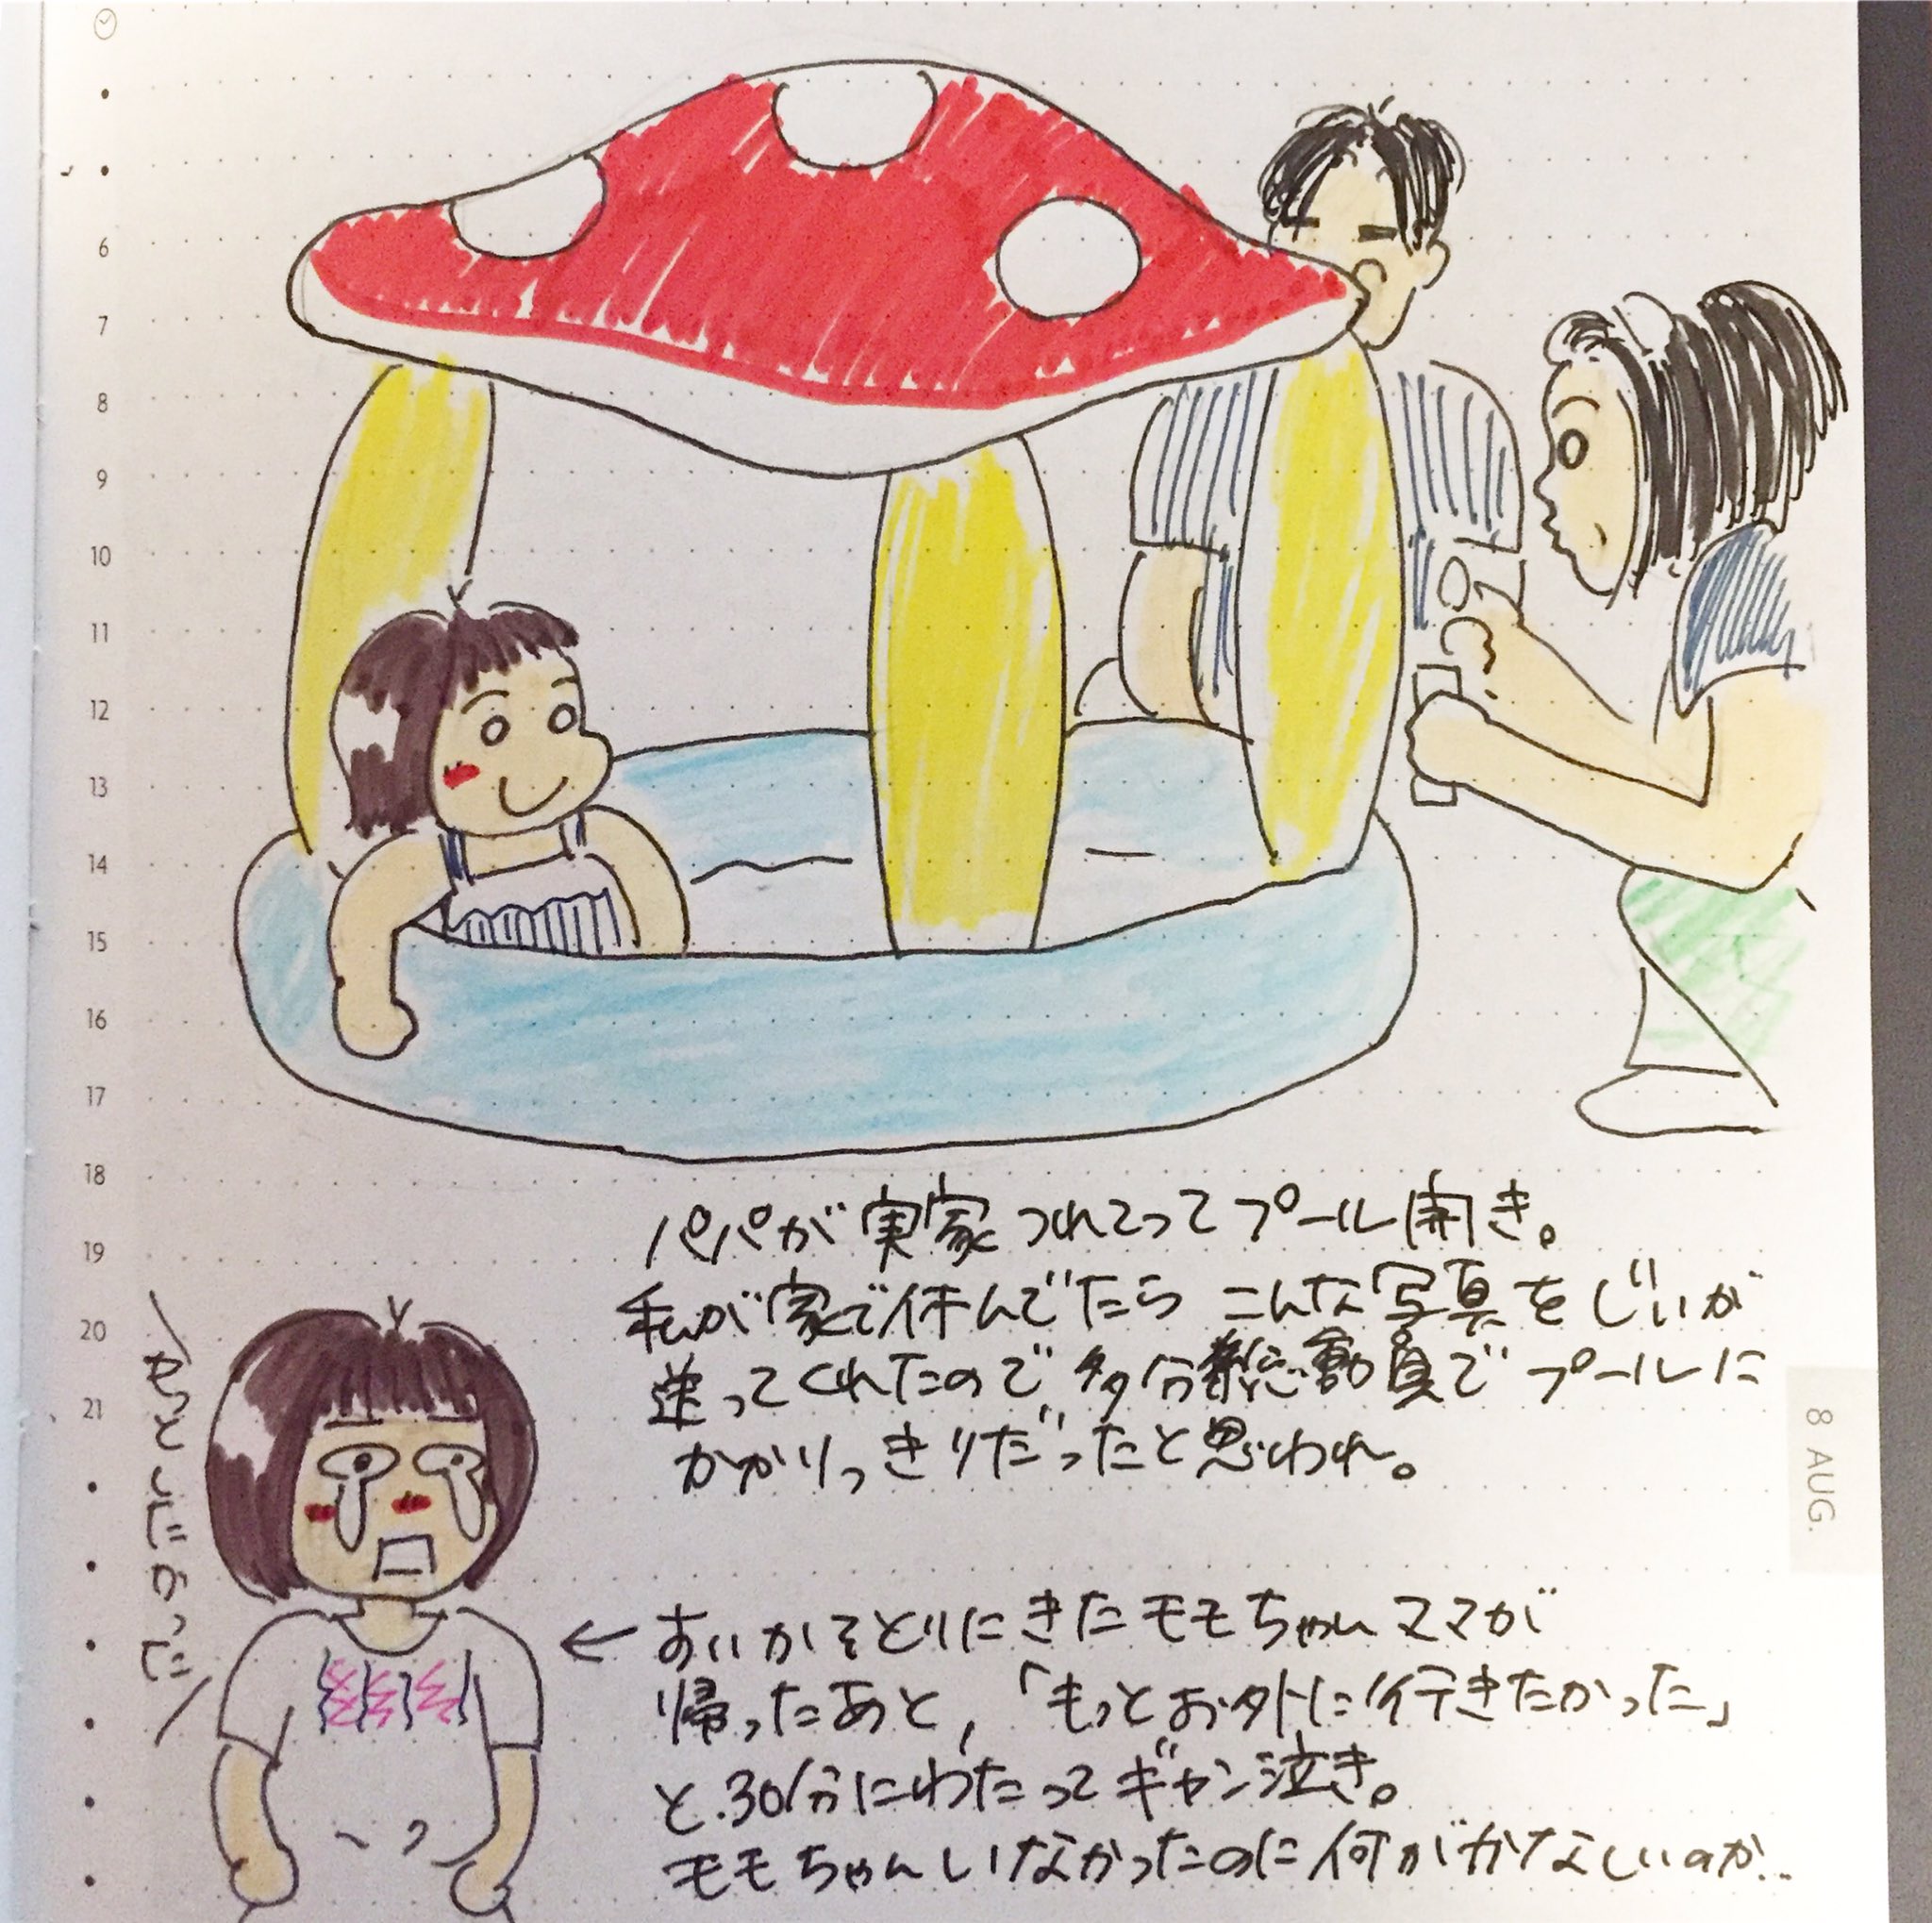 6
7
8
9
10
11
12
13
14
15
16
17
18
19
20
21
8 AUG.
パパが実家つれてってプール開き。
私が家で休んでたら こんな写真をじいが
送ってくれたので、多分 総動員でプールに
かかりっきりだったと思われ。
もっと
すいかをとりにきたモモちゃんママが
帰ったあと、「もっとお外に行きたかった」
と30分にわたってギャン泣き。
モモちゃんいなかったのに何がかなしいのか…